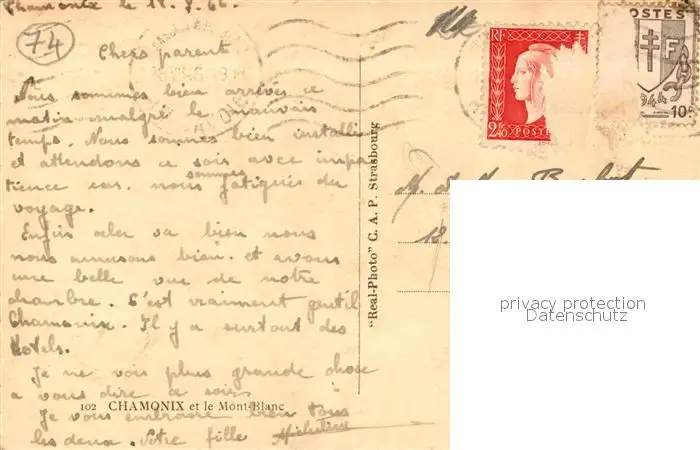 Chamonix le 18.8.46
74
Chers parent
Nous sommes bien arrivés ce
matin malgré le mauvais
temps. Nous sommes bien installé
et attendons ce soir avec impa
tience car nous sommes fatigués du
voyage.
Enfin cela va bien nous
nous amusons bien. et avons
une belle vue de notre
chambre. C'est vraiment gentil
Chamonix. Il y a surtout des
Hotels.
Je ne vois plus grande chose
a vous dire ce soir
102 CHAMONIX et le Mont-Blanc
Je vous embrasse bien tous
les deux. Votre fille Micheline
"Real-Photo" C. A. P. Strasbourg
RF
2f40 POSTES
POSTES
F
1944
10c
M. &
privacy protection
Datenschutz